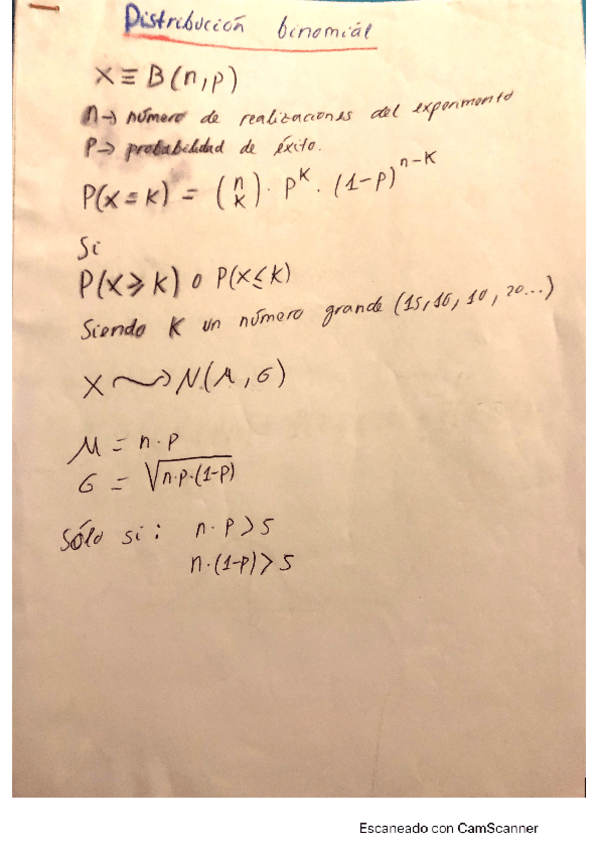 Distribución binomial
X ≡ B(n,p)
n → número de realizaciones del experimento
P → probabilidad de éxito.
P(x = k) = (n k) · p^k · (1-p)^n-k
Si
P(X ⩾ k) o P(X ≤ k)
Siendo K un número grande (15, 16, 10, 20...)
X ⟿ N(μ, σ)
μ = n · p
σ = √n·p·(1-p)
Sólo si: n · p > 5
n · (1-p) > 5
Escaneado con CamScanner